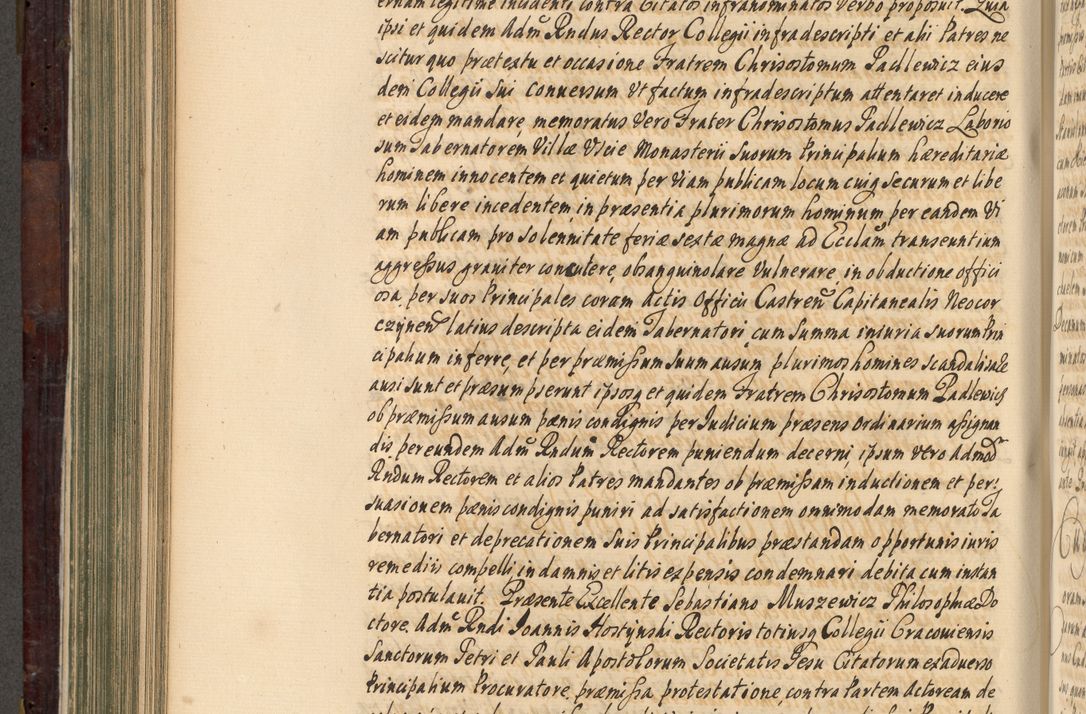 ernam legitime incidenti contra Citatos infranominatos Verbo proposuit. Quia
ipsi et quidem Adm̃ Rndus Rector Collegii infradescripti et alii Patres ne
scitur quo prætextu et occasione Fratrem Chrisostomum Padlewicz eius
dem Collegii sui conuersum Vt factum infradescriptum attentaret inducere
et eidem mandare, memoratus Vero Frater Chrisostomus Padlewicz Laborio
sum Tabernatorem Villæ Vscie Monasterii Suorum Principalium hæreditariæ
hominem innocentem et quietum per Viam publicam locum cuiq securum et libe
rum libere incedentem in præsentia plurimorum hominum per eandem Vi
am publicam pro solennitate feriæ sextæ magnæ ad Ecclam̃ transeuntium
aggressus grauiter concutere, obsanguinolare Vulnerare, in obductione offici
osa per suos Principales coram actis Officii Castren̄ Capitanealis Neocor
czynen̄ latius descripta eidem Tabernatori cum Summa iniuria suorum Prin
cipalium inferre, et per præmissum suum ausum plurimos homines scandalisare
ausi sunt et præsumpserunt ipsosq et quidem Fratrem Chrisostomum Padlewicz
ob præmissum ausum pænis condignis per Iudicium præsens Ordinarium assignan
dis per eundem Adm̃ Rndum Rectorem puniendum decerni, ipsum Vero Admod
Rndum Rectorem et alios Patres mandantes ob præmissam inductionem et per
suasionem pænis condignis puniri ad satisfactionem omnimodam memorato Ta
bernatori et deprecationem suis Principalibus præstandam opportunis iuris
remediis compelli in damnis et litis expensis condemnari debita cum instan
tia postulauit. Præsente Excellente Sebastiano Muszewicz Philosophiæ Do
ctore. Adm̃ Rndi Ioannis Hostynski Rectoris totiusq Collegii Cracouiensis
Sanctorum Petri et Pauli Apostolorum Societatis Iesu Citatorum ex aduerso
Principalium Procuratore, præmissa protestatione, contra Partem Actoream de